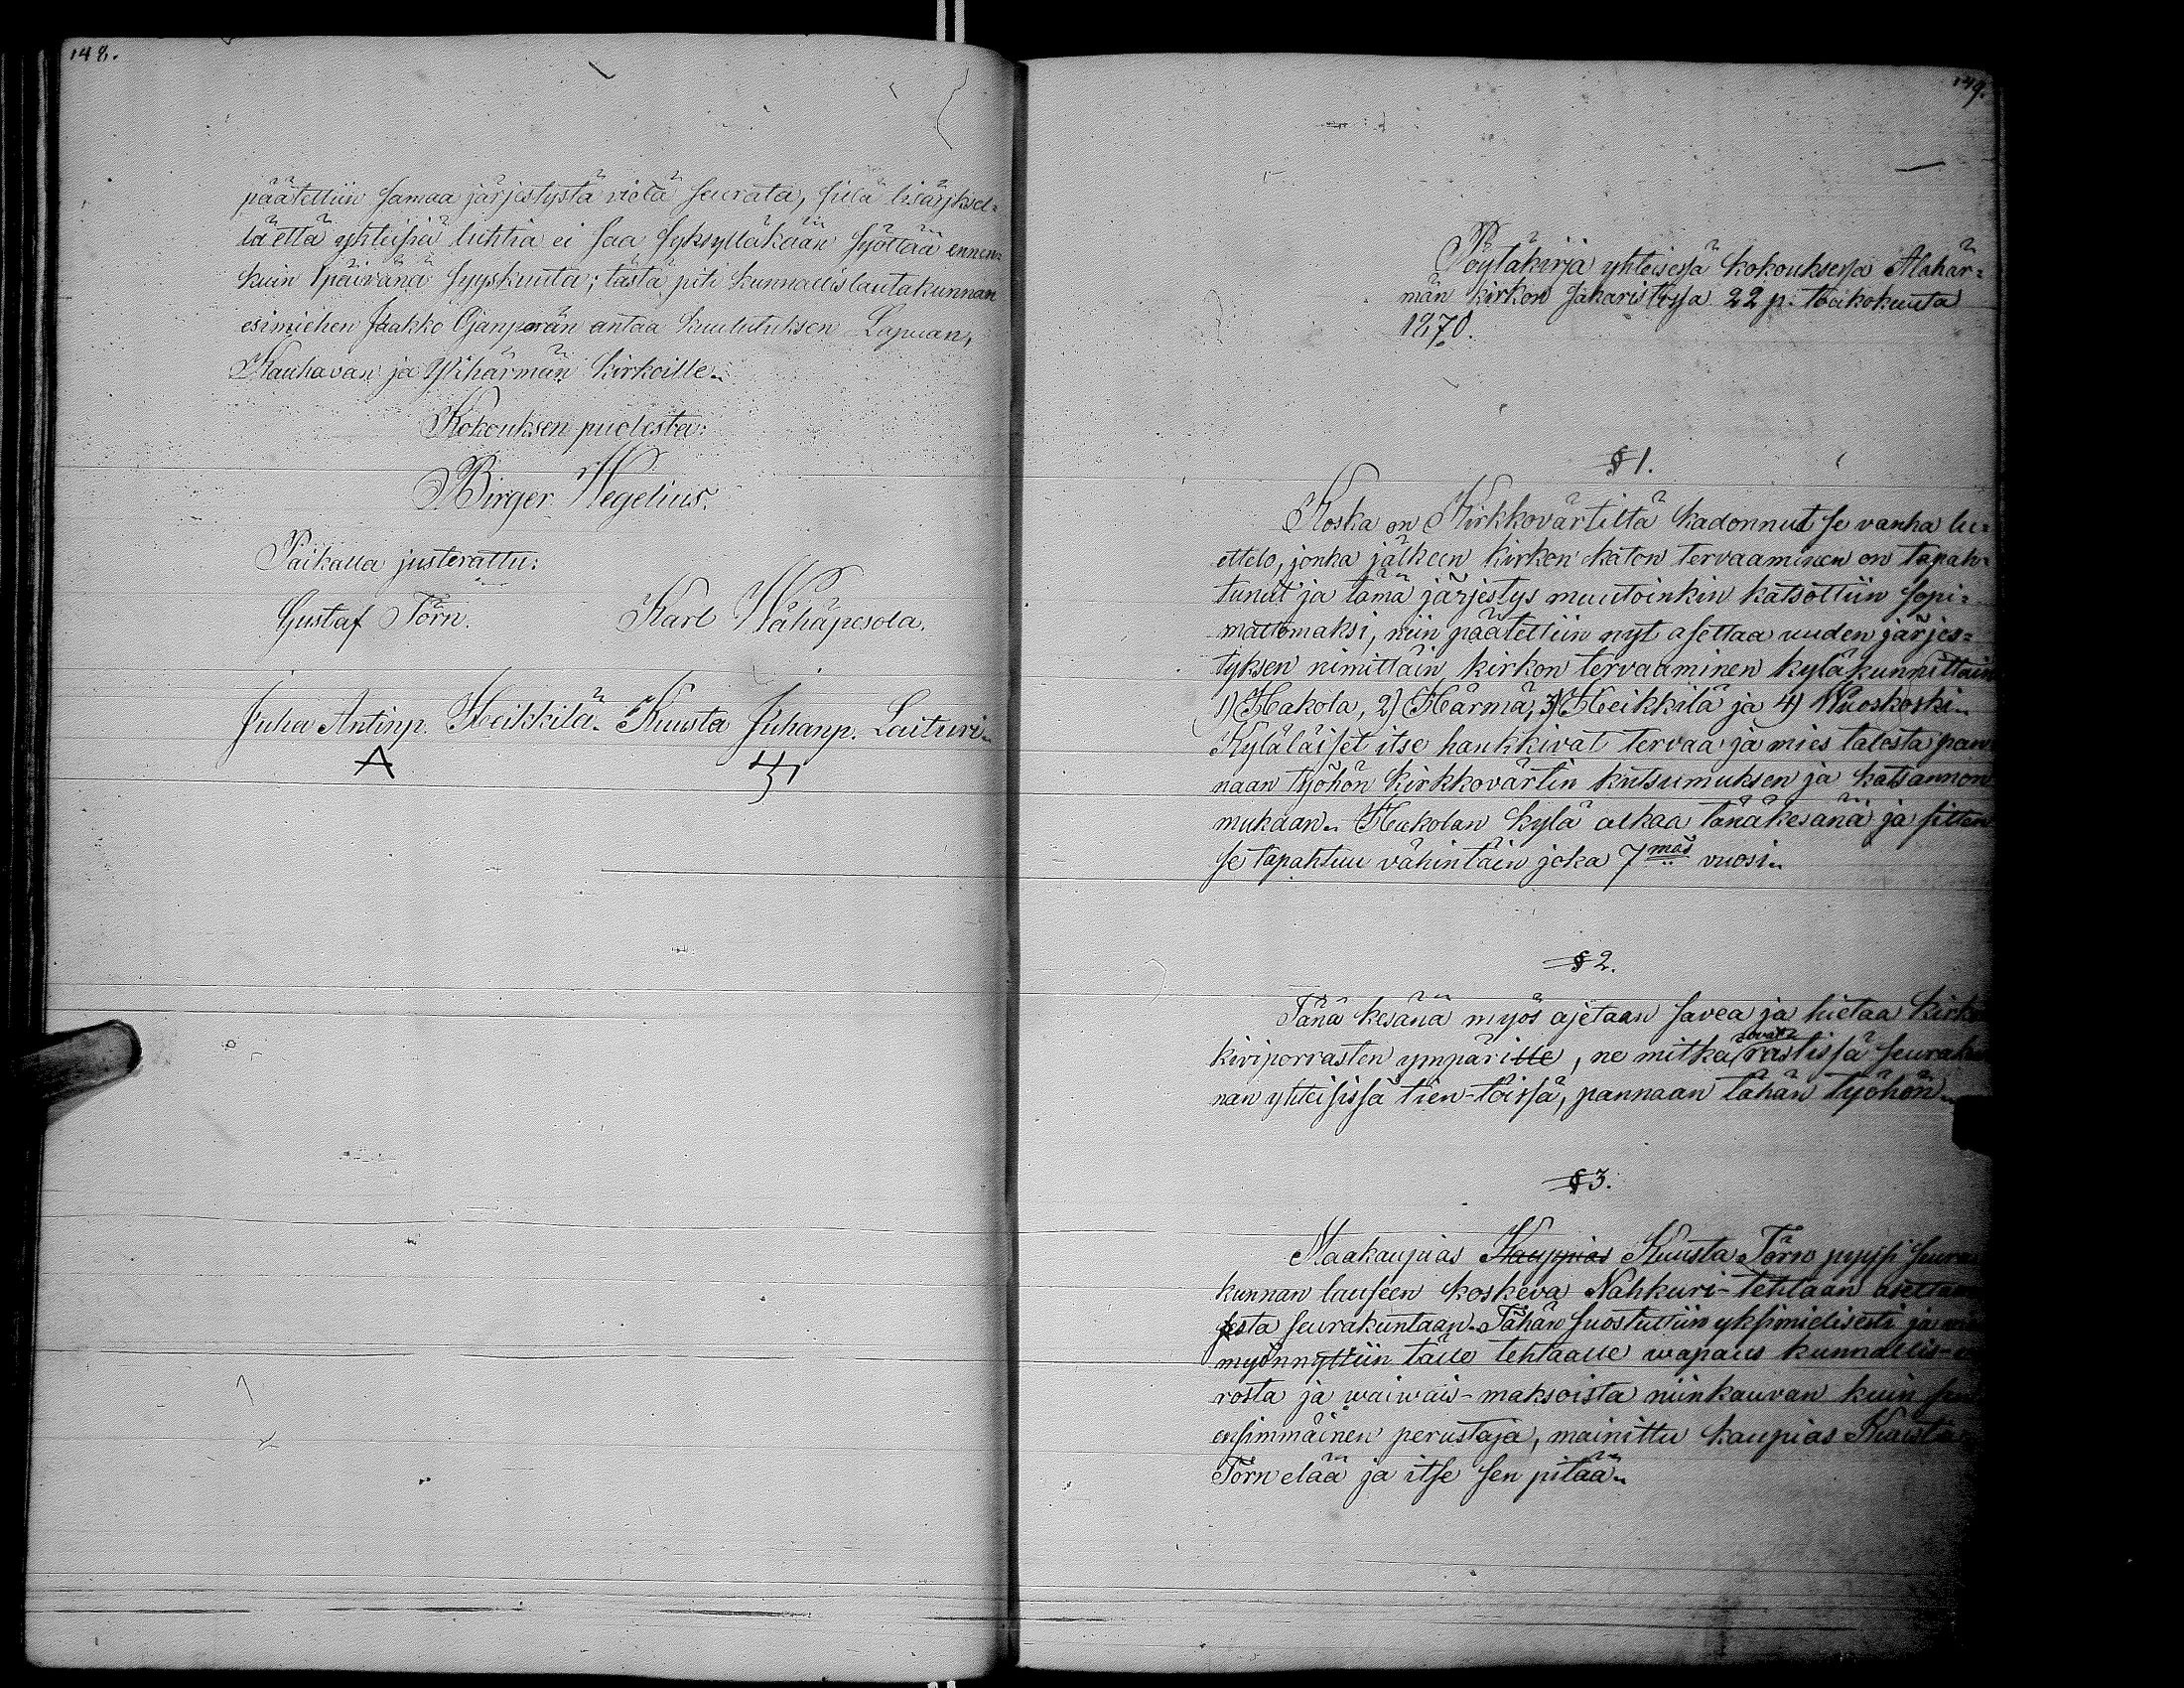 148.
päätettiin samaa järjestystä vielä seurata, sillä lisäyksel=
lä että yhteisiä luhtia ei saa syksylläkään syöttää ennen=
kuin 1 päivänä syyskuuta; tästä piti kunnallislautakunnan
esimiehen Jaakko Ojanperän antaa kuulutuksen Lapuan,
Kauhavan ja Ylihärmän kirkoille.
Kokouksen puolesta:
Birger Hegelius.
Paikalla justerattu:
Gustaf Törn. Karl Wähäpesola.
Juha Antinp. Heikkilä. Kuusta Juhanp. Laituri.
149.
Pöytäkirja yhteisessä kokouksessa Alahär=
män kirkon sakaristossa 22 p. toukokuuta
1870.
§ 1.
Koska on Kirkkovärtiltä kadonnut se vanha lu=
ettelo, jonka jälkeen kirkon katon tervaaminen on tapah=
tunut ja tämä järjestys muutoinkin katsottiin sopi=
mattomaksi, niin päätettiin nyt asettaa uuden järjes=
tyksen nimittäin kirkon tervaaminen kyläkunnittain
1) Hakola, 2) Härmä, 3) Heikkilä ja 4) Wuoskoski.
Kyläläiset itse hankkivat tervaa ja mies talosta pan
naan työhön kirkkovärtin kutsumuksen ja katsannon
mukaan. Hakolan kylä alkaa tänäkesänä ja sitten
se tapahtuu vähintäin joka 7mäs vuosi.
§ 2.
Tänä kesänä myös ajetaan savea ja hietaa Kirkon
kiviporrasten ympärille, ne mitkä ovat rästissä seurakun
nan yhteisissä tien-töissä, pannaan tähän työhön.
§ 3.
Maakaupias Kauppias Kuusta Törn pyysi seura
kunnan lauseen koskeva Nahkuri-tehtaan asettami
sesta seurakuntaan. Tähän suostuttiin yksimielisesti ja
myönnyttiin tälle tehtaalle wapaus kunnallis-
rosta ja waiwais-maksoista niinkauvan kuin sen
ensimmäinen perustaja, mainittu kaupias Kuusta
Törn elää ja itse sen pitää.